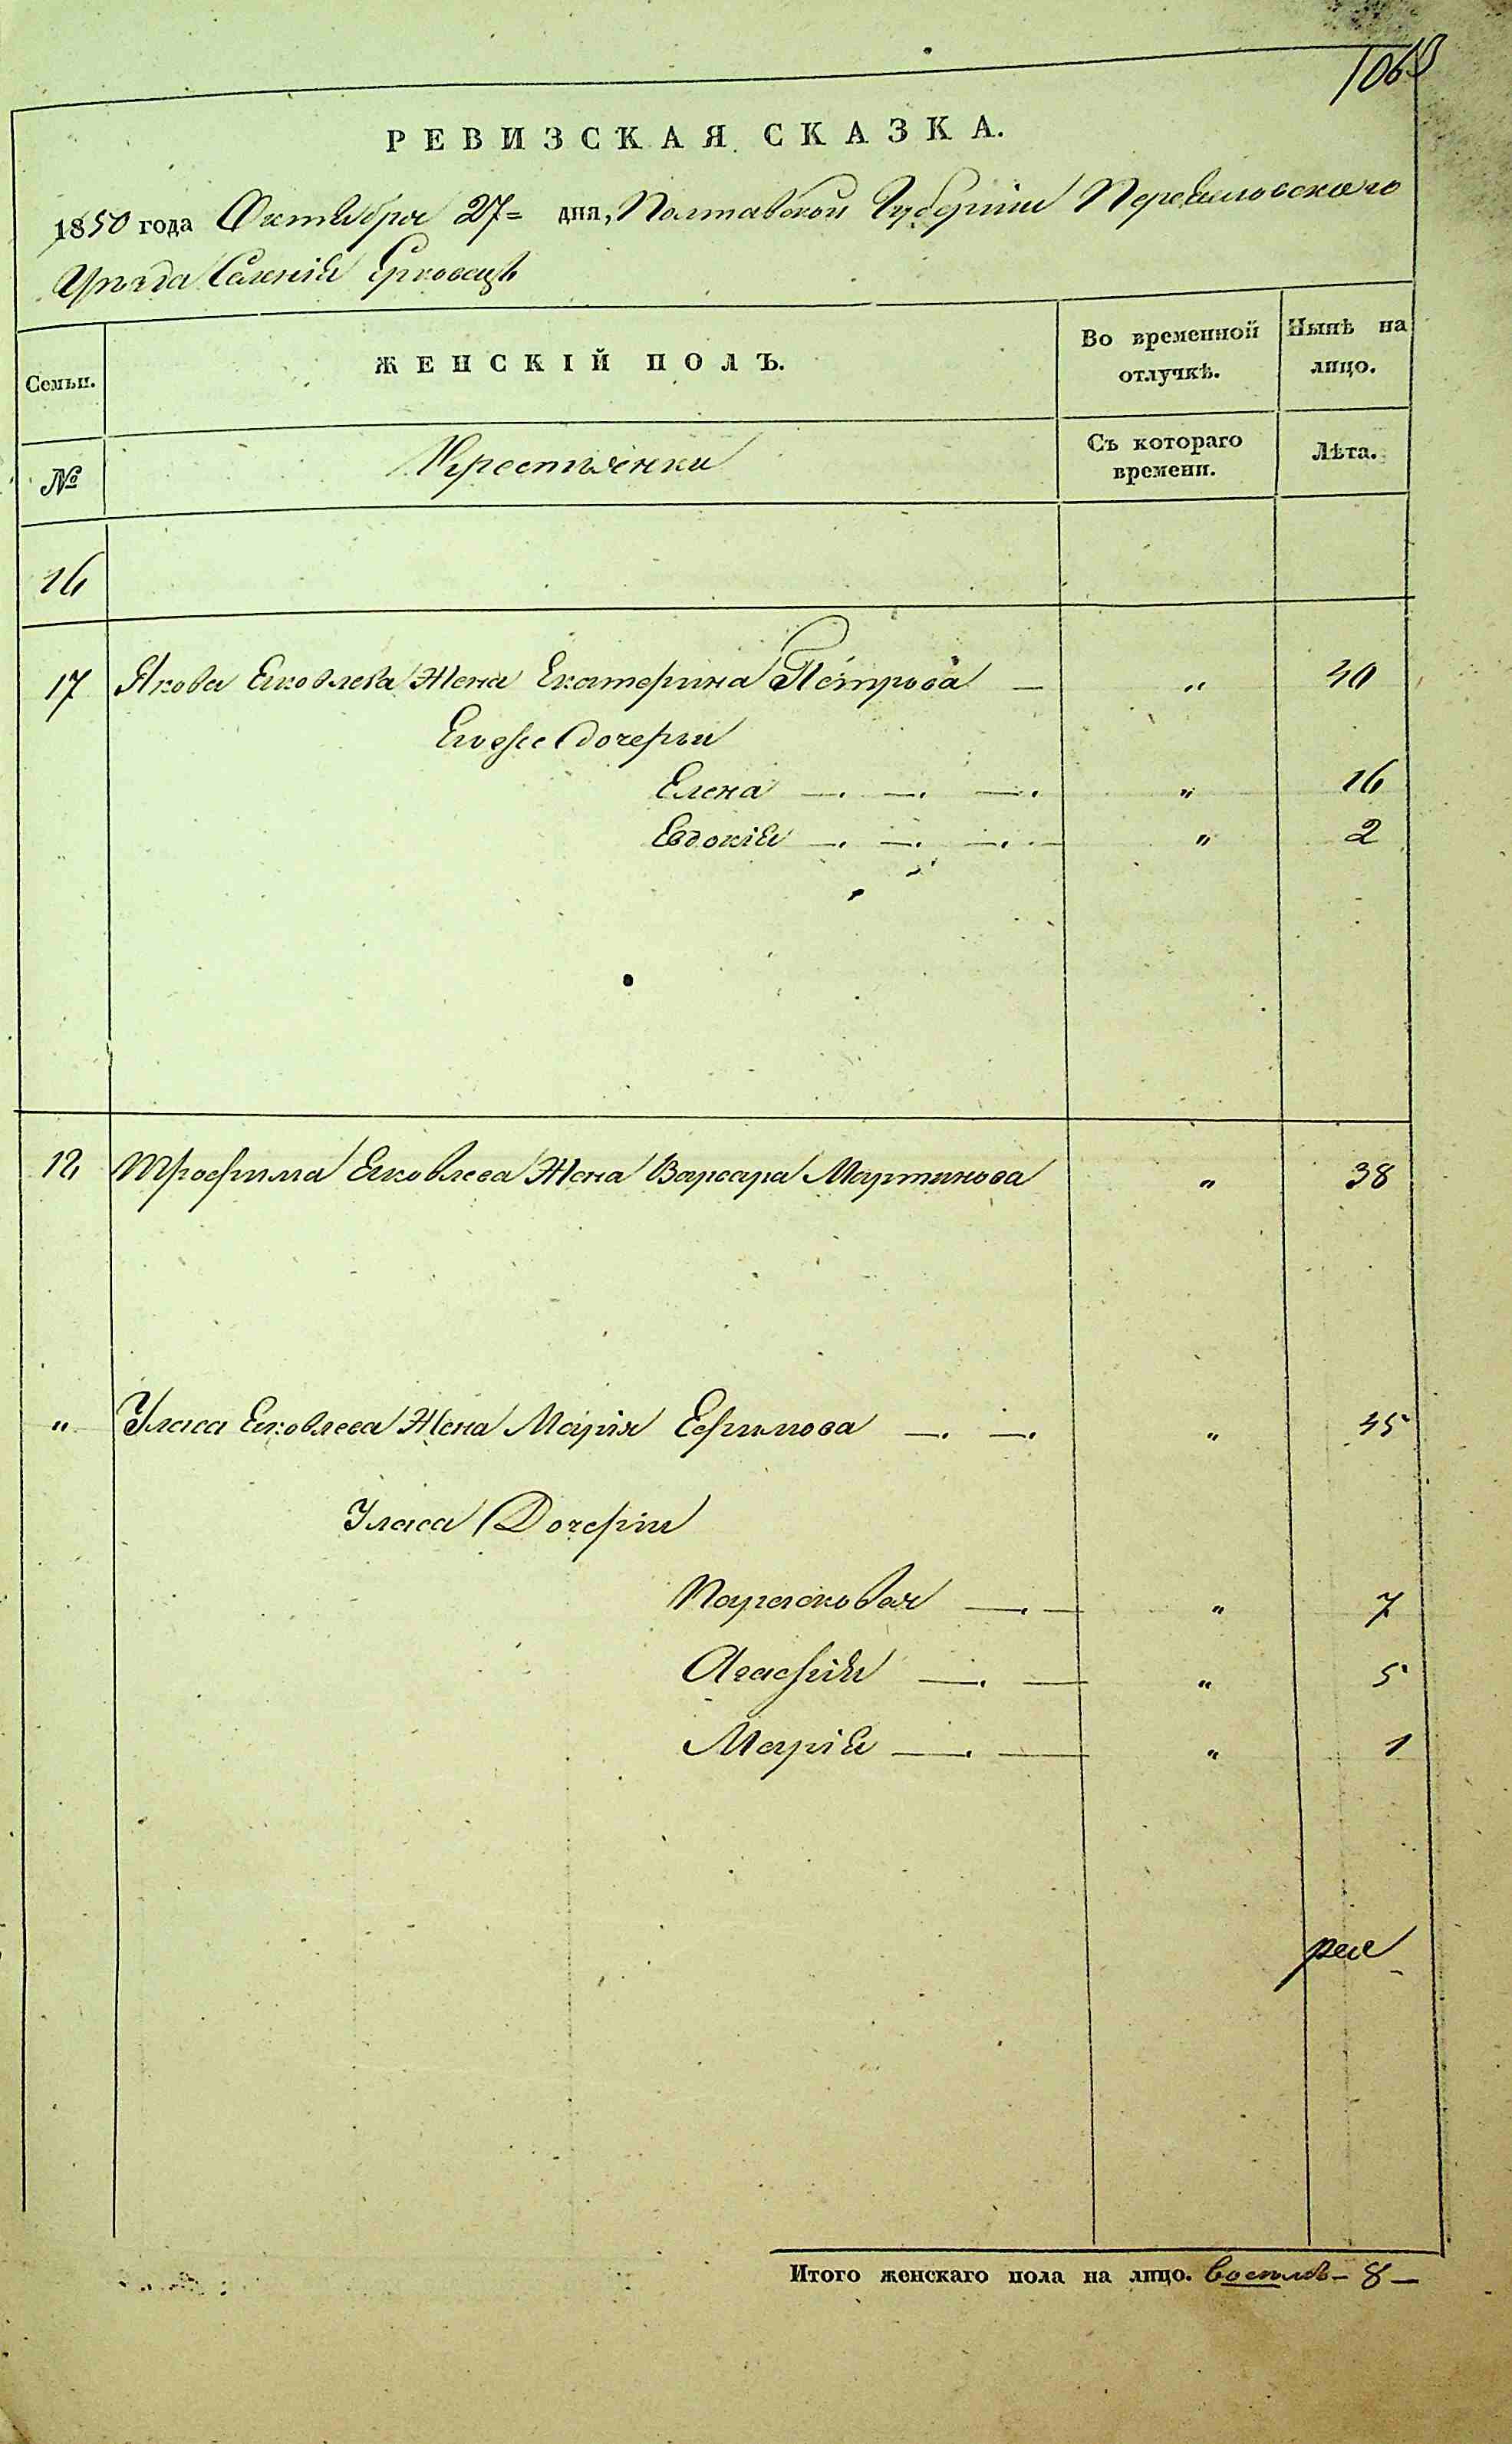 1063
РЕВИЗСКАЯ СКАЗКА.
1850 года Октября 27 = дня, Полтавской Губерніи Переяславскаго
Уѣзда Селенія Ерковецъ
Семьи.
ЖЕНСКІЙ ПОЛЪ.
Во временной отлучкѣ.
Нынѣ на лицо.
№
Крестьянки
Съ котораго времени.
Лѣта.
16
17 Якова Яковлева Жена Екатерина Петрова — „ 40
Егоже дочери
Елена —. —. —. „ 16
Евдокія —. —. —. — „ 2
12 Трофима Яковлева Жена Варвара Мартинова „ 38
„ Уласа Яковлева Жена Марія Ефимова —. —. „ 45
Уласа Дочери
Парасковья —. — „ 7
Агафія —. — „ 5
Марія —. — „ 1
Итого женскаго пола на лицо. восемь – 8 –